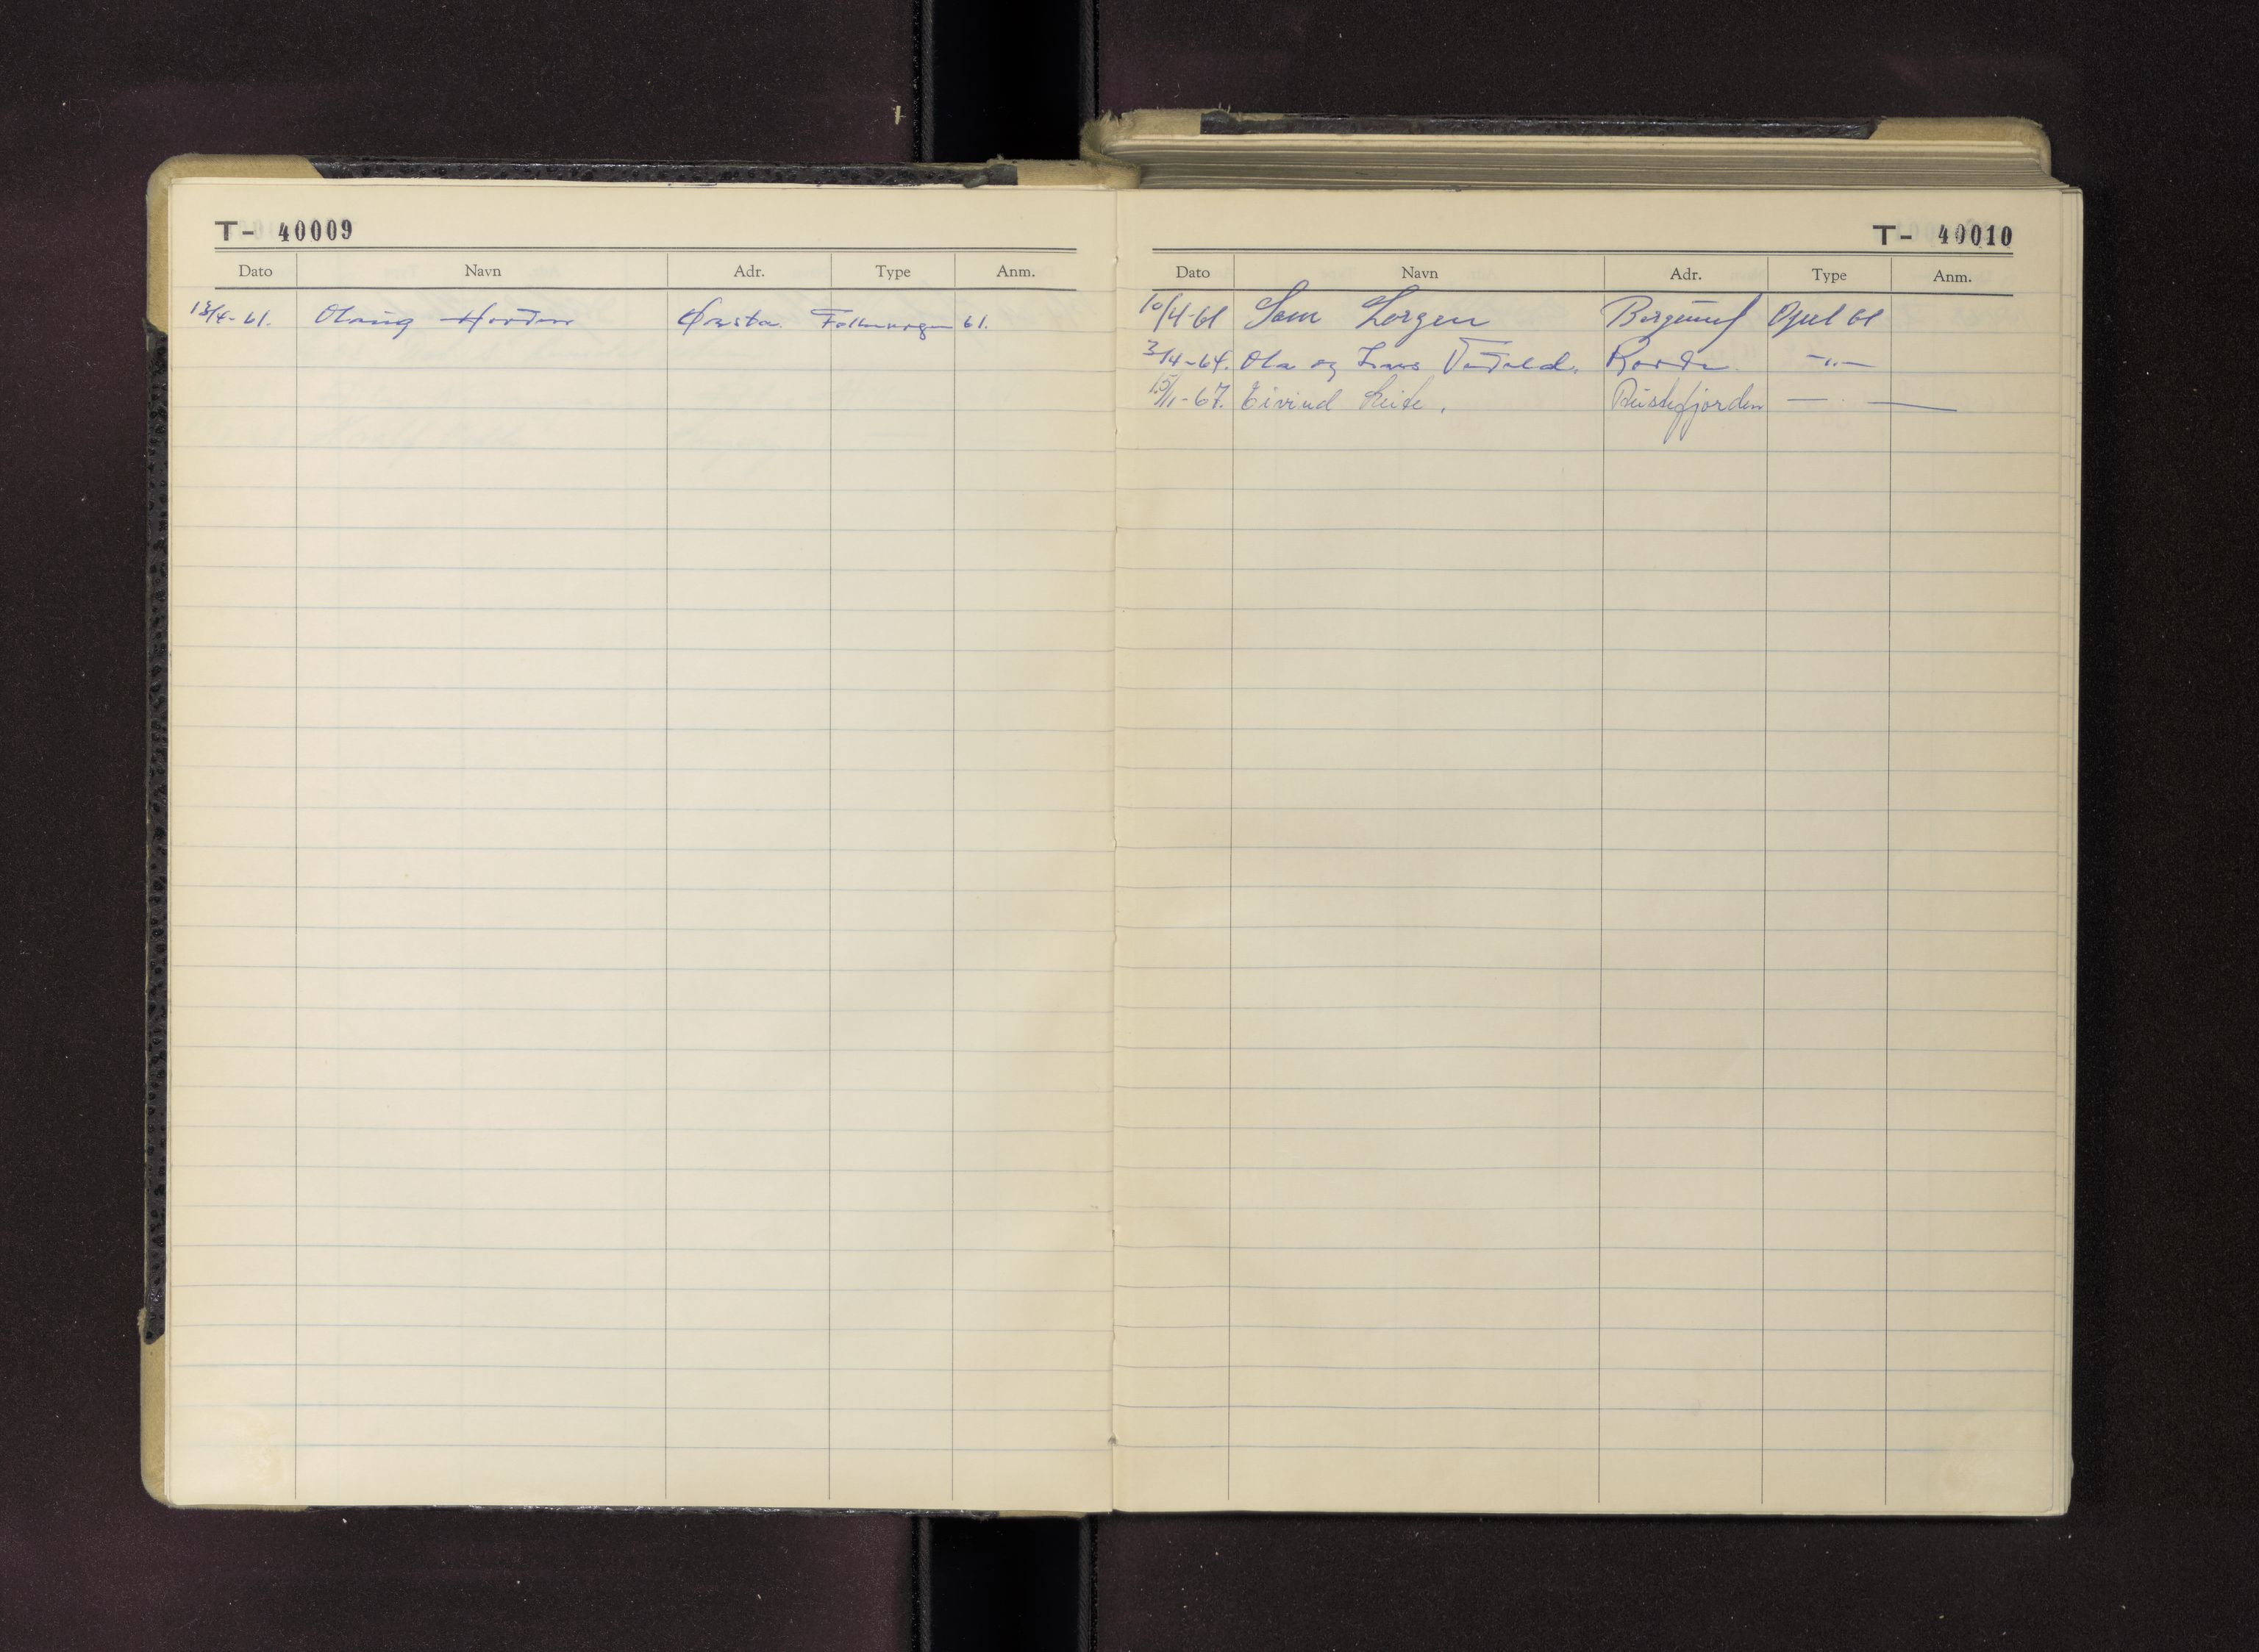 T- 40009
Dato Navn Adr. Type Anm.
13/4-61. Olaug Hovden Ørsta. Folkevogn 61.
T- 40010
Dato Navn Adr. Type Anm.
10/4-61 Sam Lorgen Borgund Opel 61
3/4-64. Ola og Hans -"-
15/11-67. Eivind Leite. Reistefjorden — " —